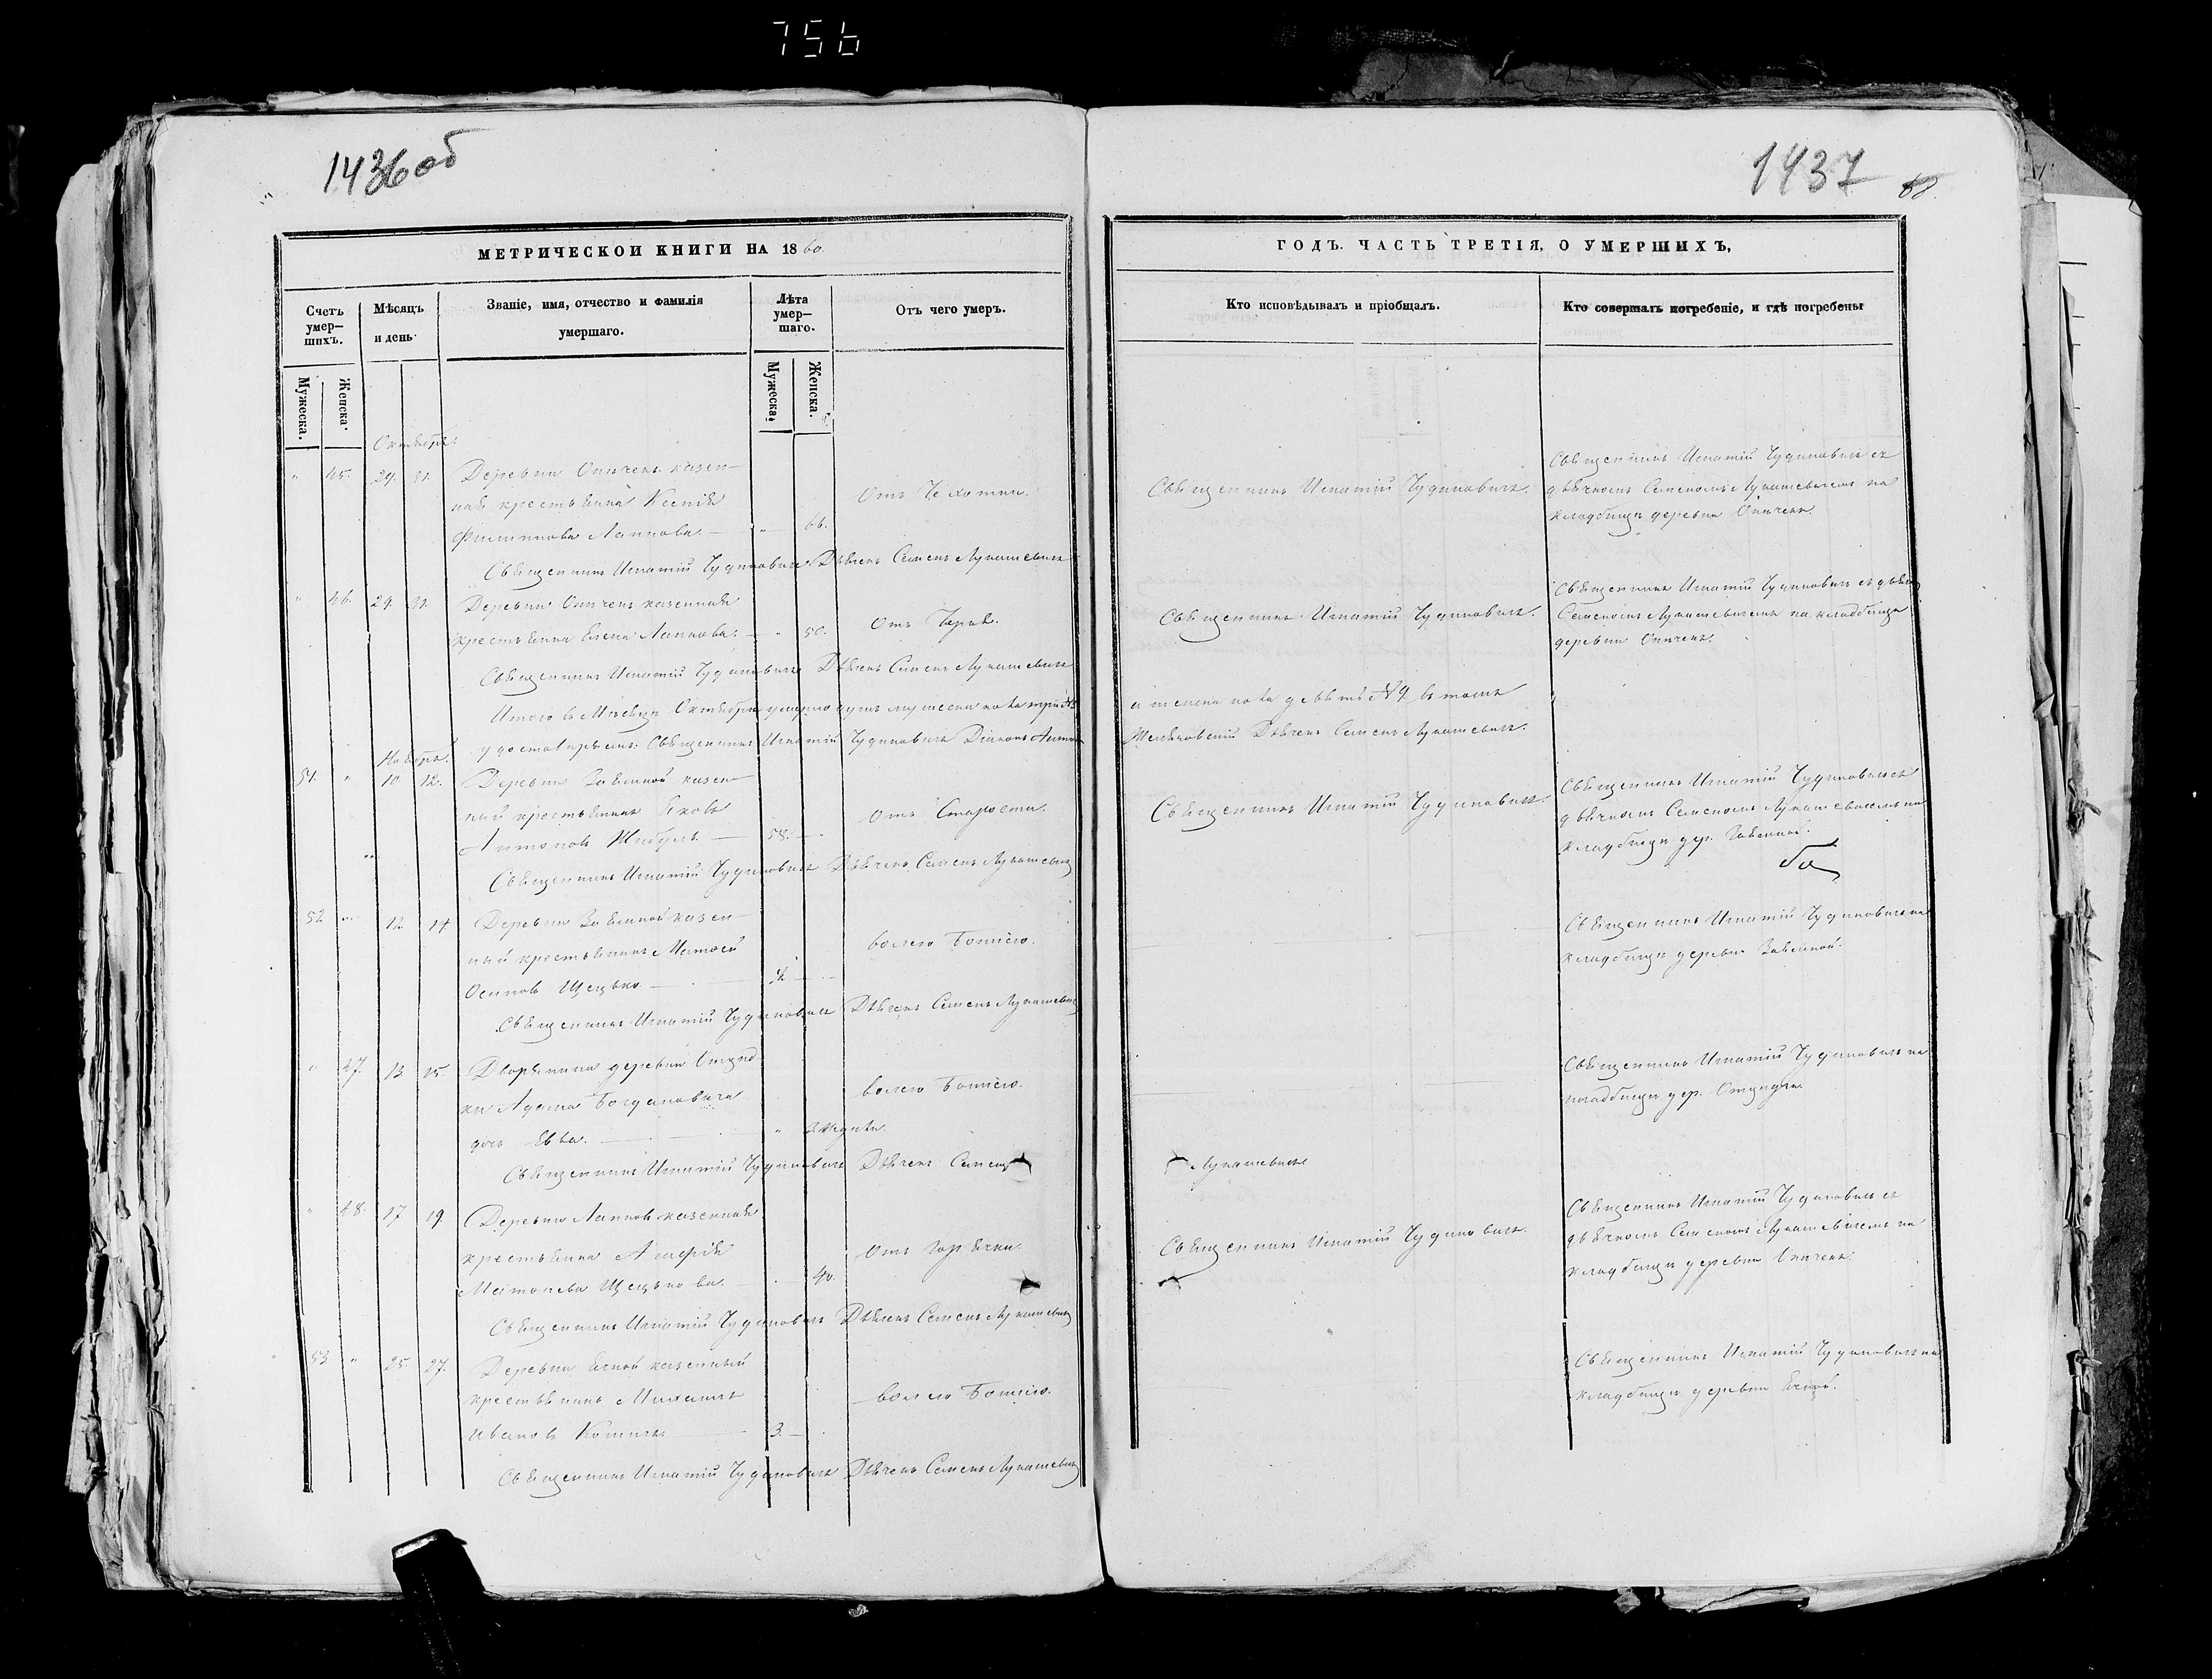 756
1436 об
1437
68.
МЕТРИЧЕСКОИ КНИГИ НА 1860.
ГОДЪ. ЧАСТЬ ТРЕТІЯ, О УМЕРШИХЪ,
Счетъ умер-шихъ.
Мѣсяцъ и день.
Званіе, имя, отчество и фамилія умершаго.
Лѣта умер-шаго.
Отъ чего умеръ.
Кто исповѣдывалъ и пріобщалъ.
Кто совершалъ погребеніе, и гдѣ погребены
Мужеска.
Женска.
Мужеска.
Женска.
Октября.
" 45. 29. 31. Деревни Опичень казен-
ная крестьянка Ксенія
Филипова Лаппова. — " 66.
Отъ Чахотки.
Священникъ Игнатій Чудиновичъ.
Священникъ Игнатій Чудиновичъ съ
дьячкомъ Семеномъ Лукашевичемъ на
кладбищи деревни Опичень.
Священникъ Игнатій Чудиновичъ Дьячекъ Семенъ Лукашевичъ
" 46. 29. 31. Деревни Опичень казенная
крестьянка Елена Лаппова. — " 50.
Священникъ Игнатій Чудиновичъ.
Священникъ Игнатій Чудиновичъ съ
Семеномъ Лукашевичемъ на кладбищи
деревни Опичень.
Священникъ Игнатій Чудиновичъ Дьячекъ Семенъ Лукашевичъ
Итого въ Мѣсяцѣ Октябрѣ умерло душъ мужеска пола три
и женска пола девять №9 въ томъ
Священникъ Игнатій Чудиновичъ Діаконъ
Дьячекъ Семенъ Лукашевичъ.
Ноября.
51. " 10. 12. Деревни казен-
ный крестьянинъ Яковъ
Антоновъ — 58. —
отъ Старости.
Священникъ Игнатій Чудиновичъ.
Священникъ Игнатій Чудиновичъ съ
дьячкомъ Семеномъ Лукашевичемъ на
кладбищи дер.
Священникъ Игнатій Чудиновичъ Дьячекъ Семенъ Лукашевичъ
52 " 12 14 Деревни казен-
ный крестьянинъ
Осиповъ
волею Божіею.
Священникъ Игнатій Чудиновичъ на
кладбищи деревни
Священникъ Игнатій Чудиновичъ Дьячекъ Семенъ Лукашевичъ
" 47. 13 15. Дворянина деревни
Адама Богдановича
дочь Ева.
волею Божіею.
Священникъ Игнатій Чудиновичъ на
кладбищи дер.
Священникъ Игнатій Чудиновичъ Дьячекъ Семенъ
Лукашевичъ
" 48. 17 19. Деревни Лаппов казенная
крестьянка Агафія
40.
отъ Горячки.
Священникъ Игнатій Чудиновичъ.
Священникъ Игнатій Чудиновичъ съ
дьячкомъ Семеномъ Лукашевичемъ на
кладбищи деревни Опичень.
Священникъ Игнатій Чудиновичъ Дьячекъ Семенъ Лукашевичъ
53 " 25. 27. Деревни казенный
крестьянинъ Михаилъ
Ивановъ 3. —
волею Божіею.
Священникъ Игнатій Чудиновичъ на
кладбищи деревни
Священникъ Игнатій Чудиновичъ Дьячекъ Семенъ Лукашевичъ